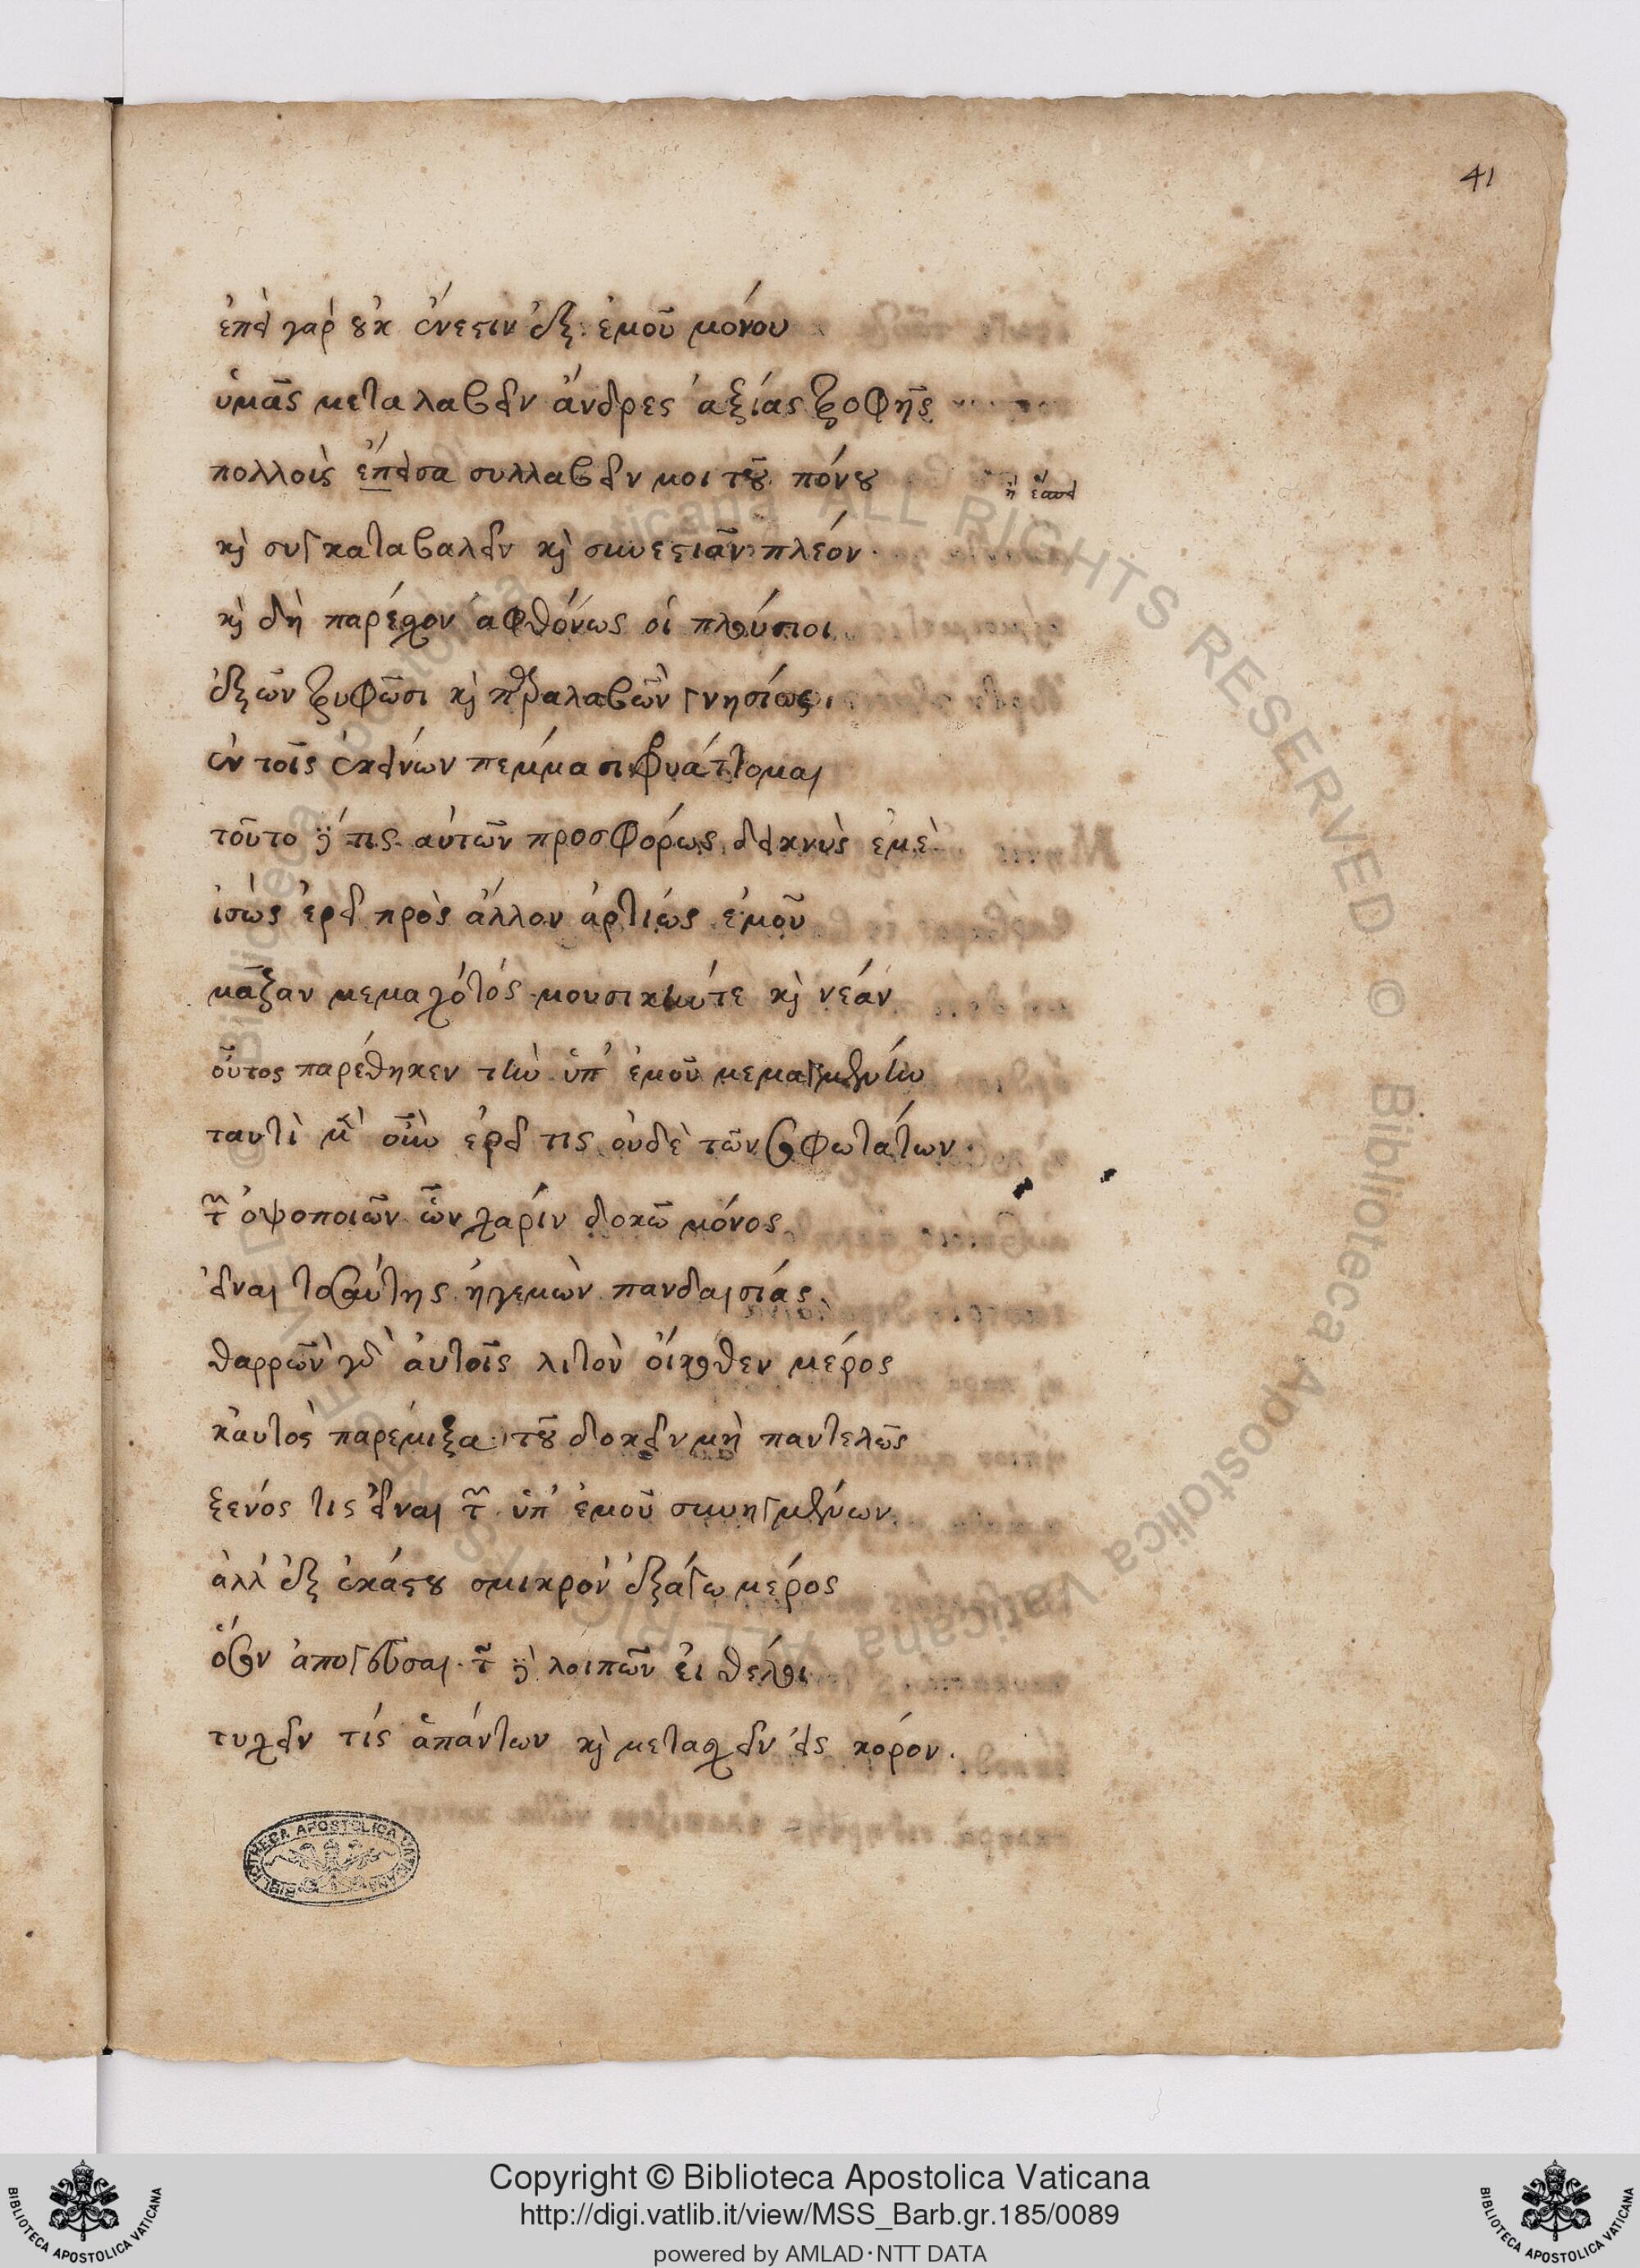 41
ἐπεὶ γὰρ οὐκ ἔνεστιν ἐξ ἐμοῦ μόνου
ὑμᾶς μεταλαβεῖν ἄνδρες ἀξίας τροφῆς
πολλοὺς ἔπεισα συλλαβεῖν μοι τοῦ πόνου
καὶ συγκαταβαλεῖν καὶ συνεστιᾶν πλέον.
καὶ δὴ παρέχον ἀφθόνως οἱ πλούσιοι
ἐξ ὧν τρυφῶσι καὶ παραλαβὼν γνησίως
ἐν τοῖς ἐκείνων πέμμασι φρυάττομαι
τοῦτο δ' ἴσως αὐτῶν προσφόρως δεικνὺς ἐμὲ
ἴσως ἐρεῖ πρὸς ἄλλον ἀρτίως ἐμοῦ
μᾶζαν μεμαχότος μουσικήν τε καὶ νέαν
οὗτος παρέθηκεν τὴν ὑπ' ἐμοῦ μεμαγμένην
ταυτὶ μὲν οὖν ἐρεῖ τις οὐδὲ τῶν σοφωτάτων.
τῶν ὀψοποιῶν ὧν χάριν δοκῶ μόνος
εἶναι τοσαύτης ἡγεμὼν πανδαισίας.
θαρρῶν γὰρ αὐτοῖς λιτὸν οἴκοθεν μέρος
καὐτὸς παρέμιξα τοῦ δοκεῖν μὴ παντελῶς
ξένος τις εἶναι τῶν ὑπ' ἐμοῦ συνηγμένων
ἀλλ' ἐξ ἑκάστου σμικρὸν ἐξάγω μέρος
ὅσον ἀπογεῦσαι. τῶν δὲ λοιπῶν εἰ θέλοι
τυχεῖν τίς ἁπάντων καὶ μετασχεῖν εἰς κόρον.
BIBLIOTHECA APOSTOLICA VATICANA
Copyright © Biblioteca Apostolica Vaticana
http://digi.vatlib.it/view/MSS_Barb.gr.185/0089
powered by AMLAD·NTT DATA
BIBLIOTECA APOSTOLICA VATICANA
BIBLIOTECA APOSTOLICA VATICANA
© Biblioteca Apostolica Vaticana ALL RIGHTS RESERVED